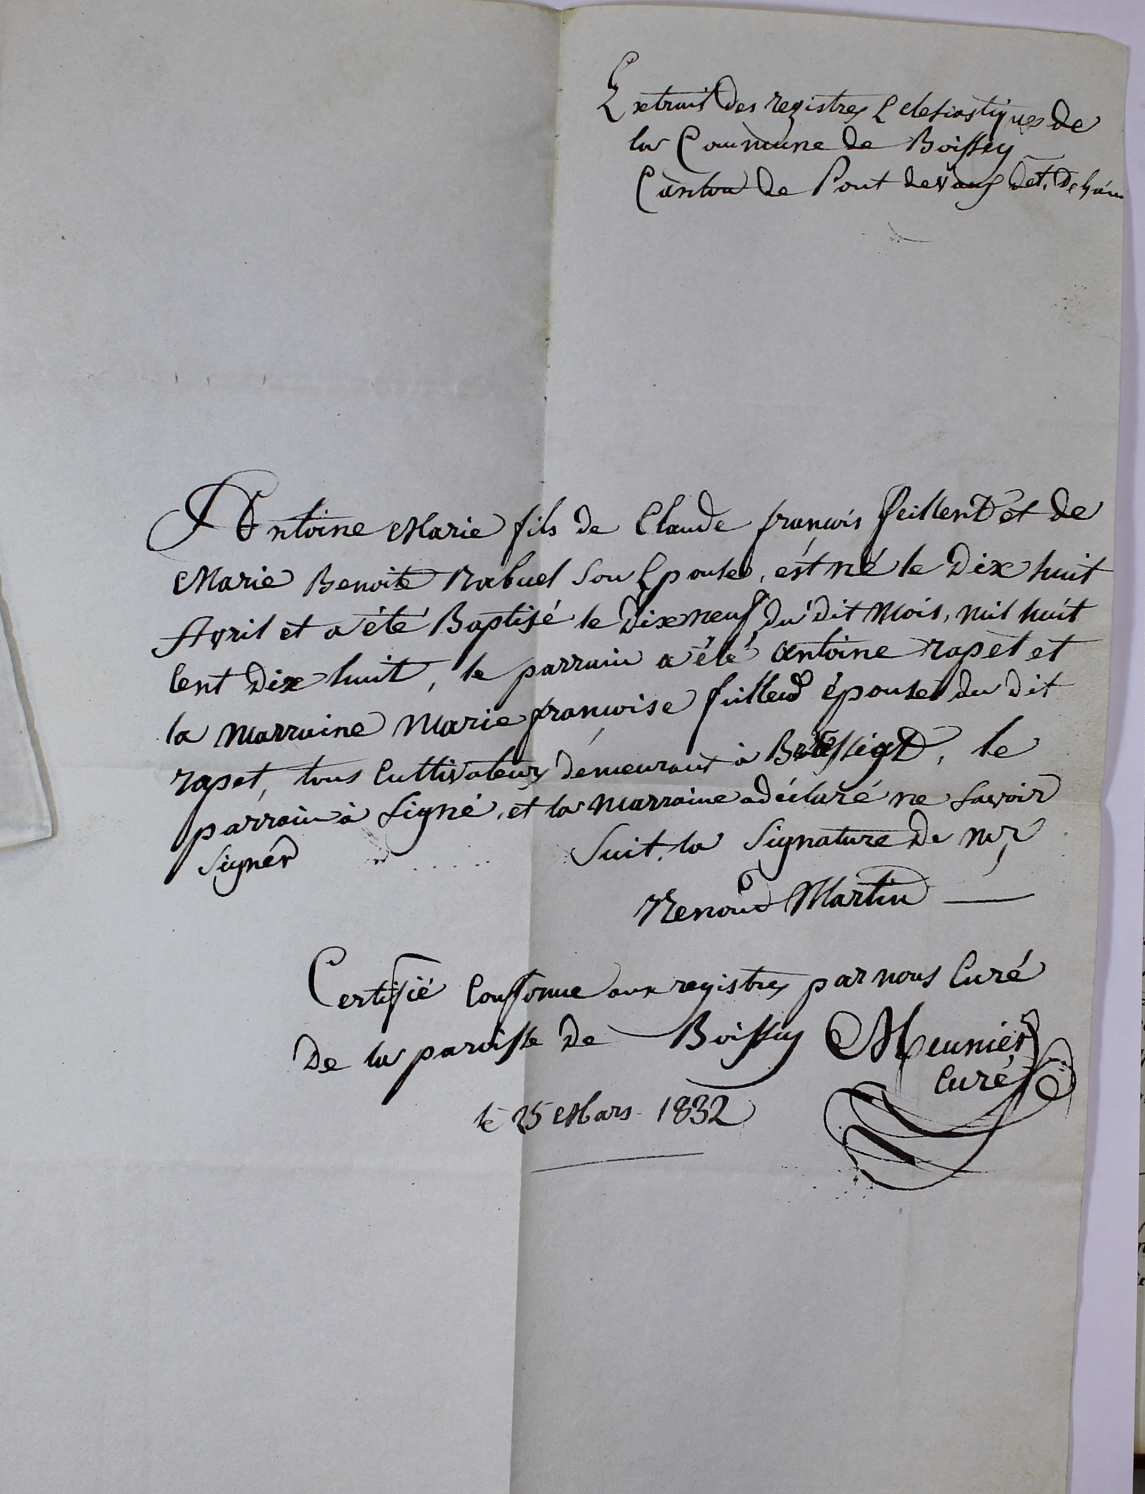 Extrait des registres Eclesiastiques de
la Commune de Boissey
Canton de Pont devaux dét. De l'ain
Antoine Marie fils de Claude françois feillend et de
Marie Benoite Rabuel Son Epouse, ést né le Dix huit
Avril et a été Baptisé le Dix neuf du dit Mois, mil huit
Cent Dix huit, le parrain a été antoine rapet et
la Marraine Marie françoise feillend épouse du Dit
rapet, tous Cultivateurs demeurant à, le
parrain à Signé, et la Marraine a déclaré ne Savoir
Signér Suit, la Signature de mr
Renoud Martin
Certifié Conforme aux registres par nous Curé
De la paroisse de Boissey Meunier
Curé
le 25 Mars 1832